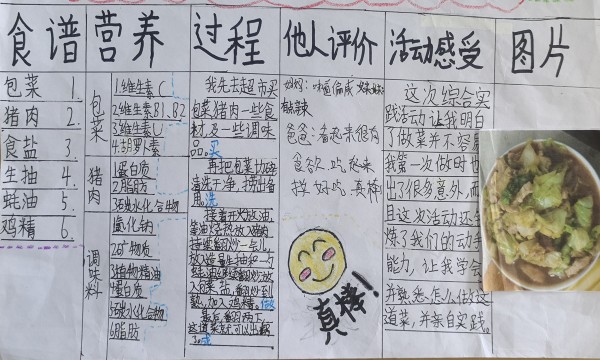 食谱
包菜 1.
猪肉 2.
食盐 3.
生抽 4.
蚝油 5.
鸡精 6.
营养
包菜
1.维生素C
2维生素B1、B2
3维生素U
4.胡罗卜素
猪肉
1蛋白质
2脂肪
3碳水化合物
调味料
氯化钠
2矿物质
3植物精油
4蛋白质
5碳水化合物
6脂肪
过程
我先去超市买
包菜猪肉一些食
材及一些调味
品。买
再把包菜切碎
清洗干净,捞出备
用。洗
接着开火放油,
等油烧热放入猪肉
持续翻炒一会儿
到
熟,加入鸡精。做
最后翻两下,
这道菜就可以出锅
了。
他人评价
妈妈:味道偏咸
爸爸:看起来很有
食欲、吃起来
挺好吃、真棒
真棒!
活动感受
这次综合实
践活动让我明白
了做菜并不容易
我第一次做时也
出了很多意外,而
且这次活动还
炼了我们的动手
能力,让我学会
并熟悉怎么做这
道菜,并亲自实践。
图片